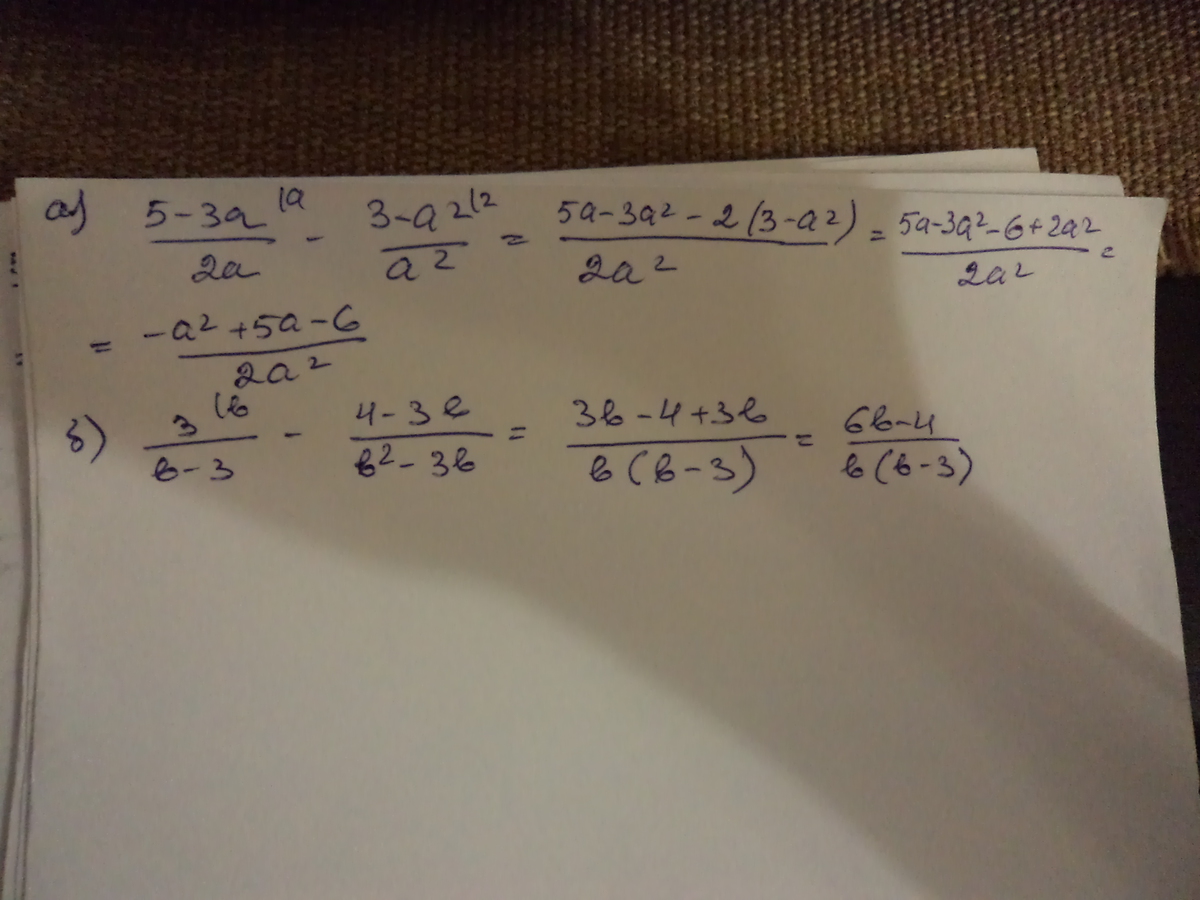 а) (5-3a)/(2a) |a - (3-a²)/(a²) |2 = (5a-3a²-2(3-a²))/(2a²) = (5a-3a²-6+2a²)/(2a²) =
= (-a²+5a-6)/(2a²)
б) 3/(в-3) |в - (4-3в)/(в²-3в) = (3в-4+3в)/(в(в-3)) = (6в-4)/(в(в-3))